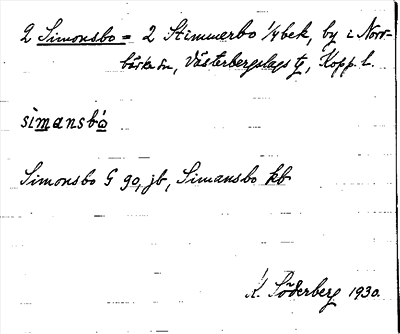 2 Simonsbo = 2 Stimmerbo 1/4 bek, by i Norr-
bärke sn, Västerbergslags tg, Kopp. l.
simansbo
Simonsbo G 90, jb, Simansbo kb
K. Söderberg 1930.